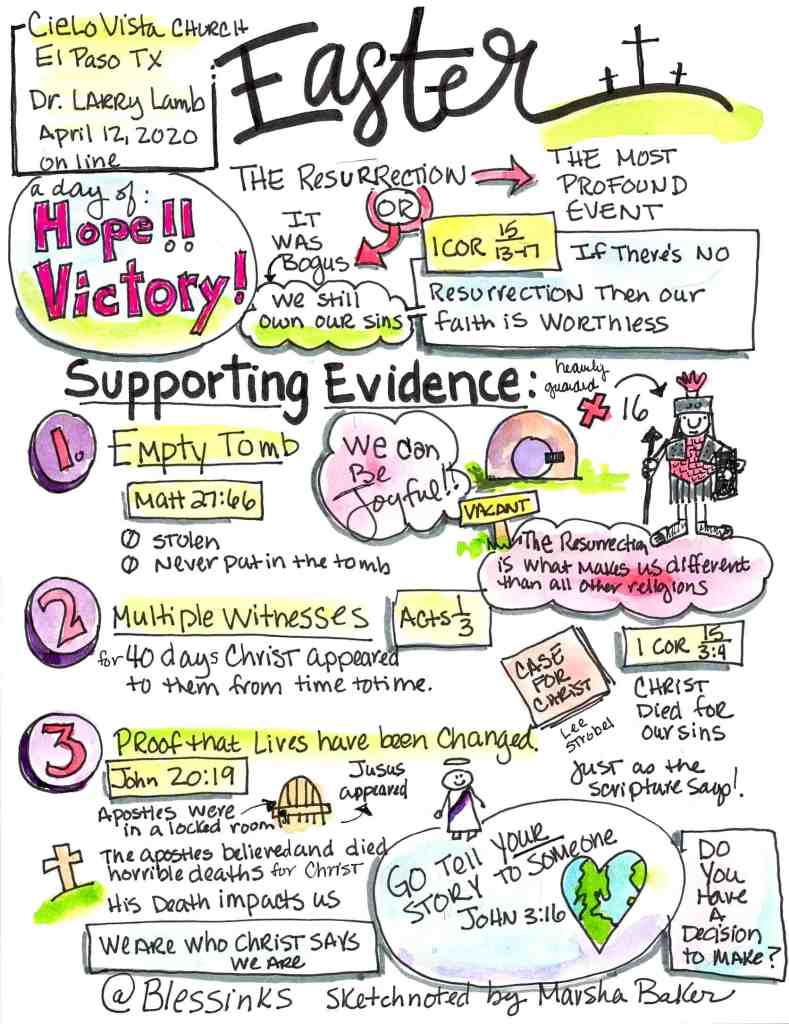 Cielo Vista Church
El Paso TX
Dr. Larry Lamb
April 12, 2020
on line
Easter
a day of:
Hope!!
Victory!
THE RESURRECTION
OR
THE MOST
PROFOUND
EVENT
IT
WAS
Bogus
We still
own our sins
1 COR 15
13-17
If There's NO
RESURRECTION Then our
faith is WORTHLESS
Supporting Evidence:
heavily
guarded
16
1.
Empty Tomb
Matt 27:66
STOLEN
Never put in the tomb
We Can
Be
Joyful!!
VACANT
The Resurrection
is what makes us different
than all other religions
2
Multiple Witnesses
Acts 1
3
for 40 days Christ appeared
to them from time to time.
CASE
FOR
CHRIST
Lee
Strobel
1 COR 15
3:4
CHRIST
Died for
our sins
Just as the
scripture says!
3
Proof that Lives have been Changed.
John 20:19
Apostles were
in a locked room
Jusus
appeared
The apostles believed and died
horrible deaths for Christ
His Death impacts us
WE ARE WHO CHRIST SAYS
WE ARE
GO Tell YOUR
STORY to Someone
JOHN 3:16
DO
You
Have
A
Decision
to MAKE?
@Blessinks Sketchnoted by Marsha Baker